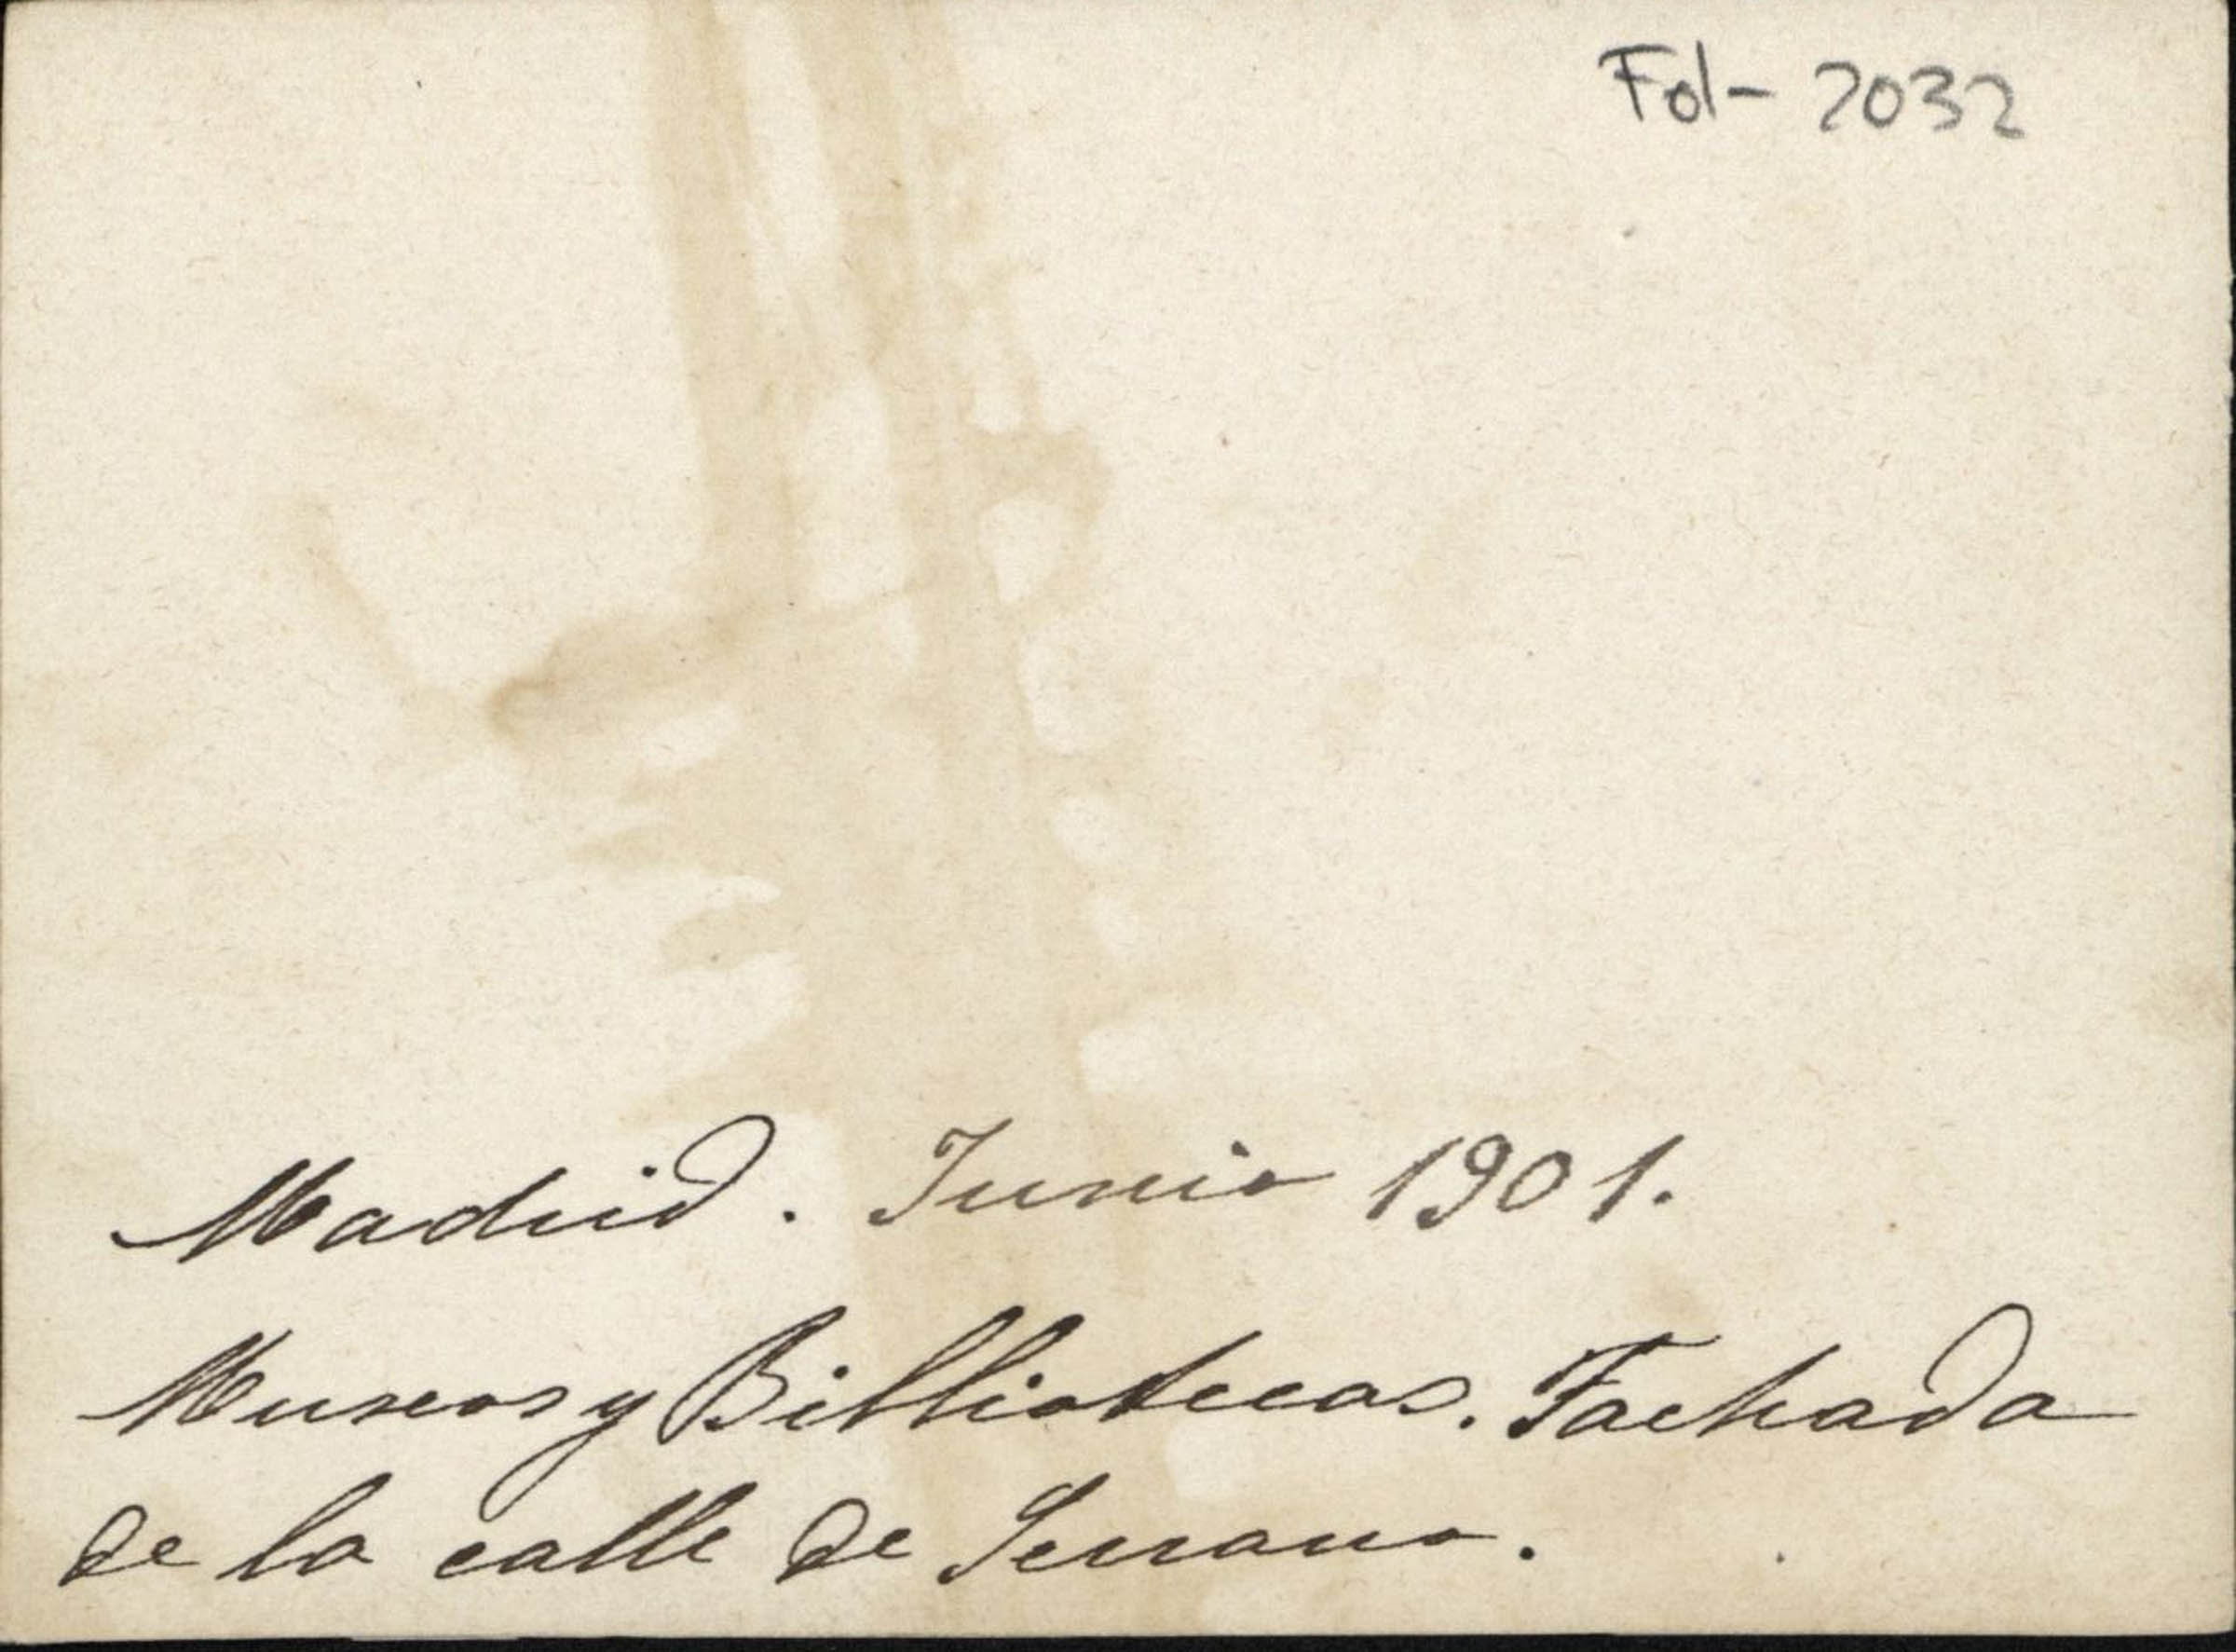 Fol- 2032
Madrid. Junio 1901.
Museos y Bibliotecas. Fachada
de la calle de Serrano.